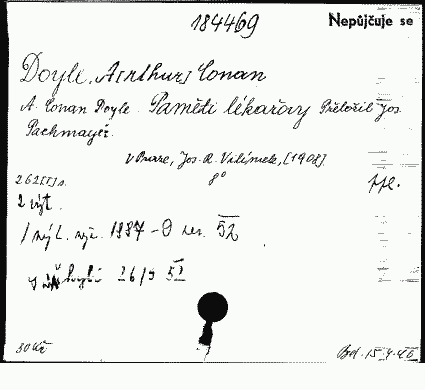 184469
Nepůjčuje se
Doyle, A[rthur] Conan
A. Conan Doyle. Paměti lékařovy Přeložil Jos.
Pachmayer.
v Praze, Jos. R. Vilímek, [1908].
262[I] s. 8°
2 výt.
1 výt. 1937 - D 52
26/5 52
30 Kč